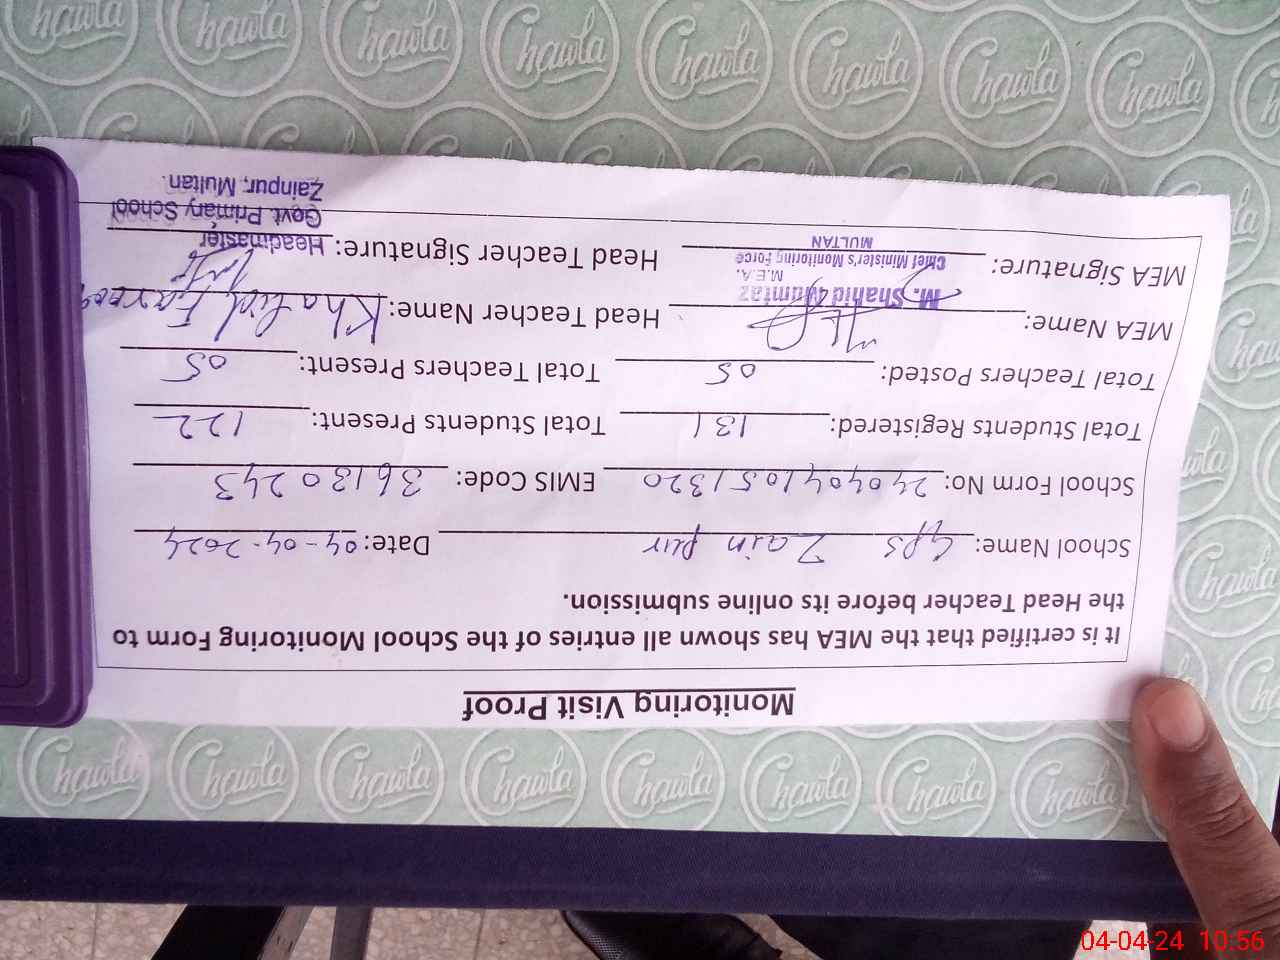 Monitoring Visit Proof
It is certified that the MEA has shown all entries of the School Monitoring Form to
the Head Teacher before its online submission.
School Name: GPS Zain pur Date: 04-04-2024
School Form No: 2404041051320 EMIS Code: 36130243
Total Students Registered: 131 Total Students Present: 122
Total Teachers Posted: 05 Total Teachers Present: 05
MEA Name: Head Teacher Name: Khalid Farooq
M. Shahid Mumtaz
M.E.A.
Chief Minister's Monitoring Force
MULTAN
MEA Signature: Head Teacher Signature:
Headmaster
Govt Primary School
Zainpur, Multan.
Chawla
04-04-24 10:56